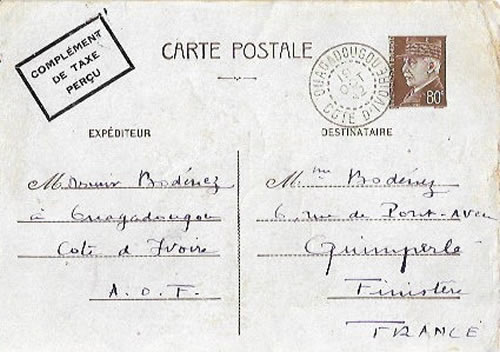 COMPLÉMENT
DE TAXE
PERÇU
CARTE POSTALE
OUAGADOUGOU
19
OCT
42
COTE D'IVOIRE
80c
EXPÉDITEUR
Monsieur Bodénez
à Ouagadougou
Cote d Ivoire
A.O.F.
DESTINATAIRE
Mme Bodénez
6, rue de Pont-Aven
Quimperlé
Finistère
FRANCE